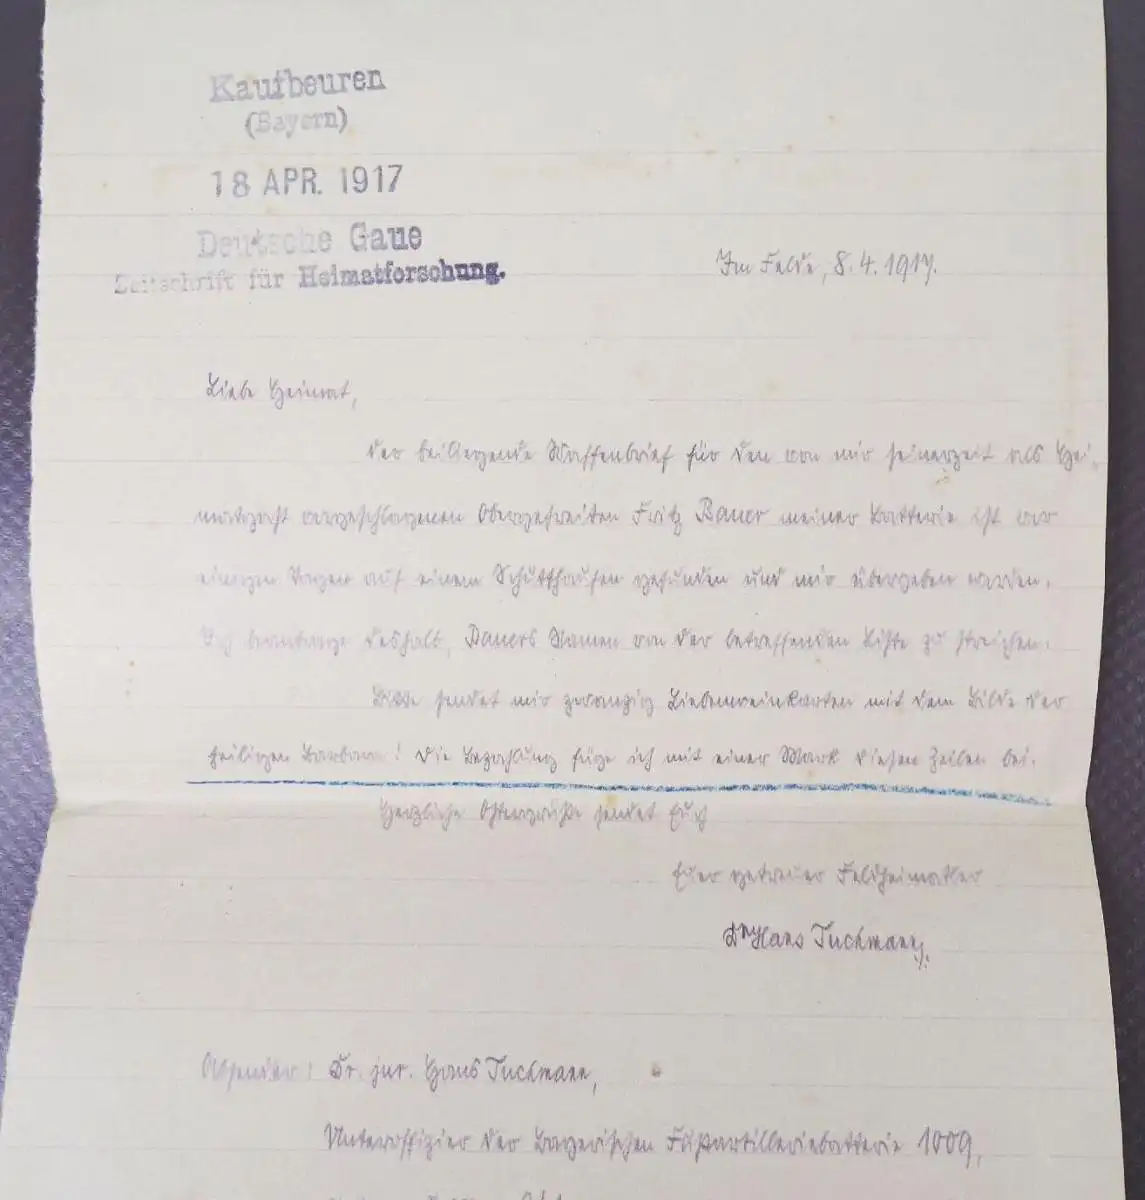 Kaufbeuren
(Bayern)
18 APR. 1917
Deutsche Gaue
Zeitschrift für Heimatforschung.
Im Felde, 8.4.1917.
Liebe Heimat,
der beiliegende Waffenbrief für den von mir seinerzeit als Hei-
vorgeschlagenen Obergefreiten Fritz Bauer meiner Batterie ist vor
einigen Tagen auf einem Schutthaufen gefunden und mir übergeben worden.
Ich beantrage deshalb, Bauers Namen von der betreffenden Liste zu streichen.
Bitte sendet mir zwanzig mit dem Bilde der
heiligen Barbara! Die Bezahlung füge ich mit einer Mark diesen Zeilen bei.
Herzliche Ostergrüße sendet Euch
Euer getreuer Feldheimatler
Dr Hans Tuchmann.
Absender: Dr. jur. Hans Tuchmann,
Unteroffizier der Bayerischen Fußartilleriebatterie 1009,